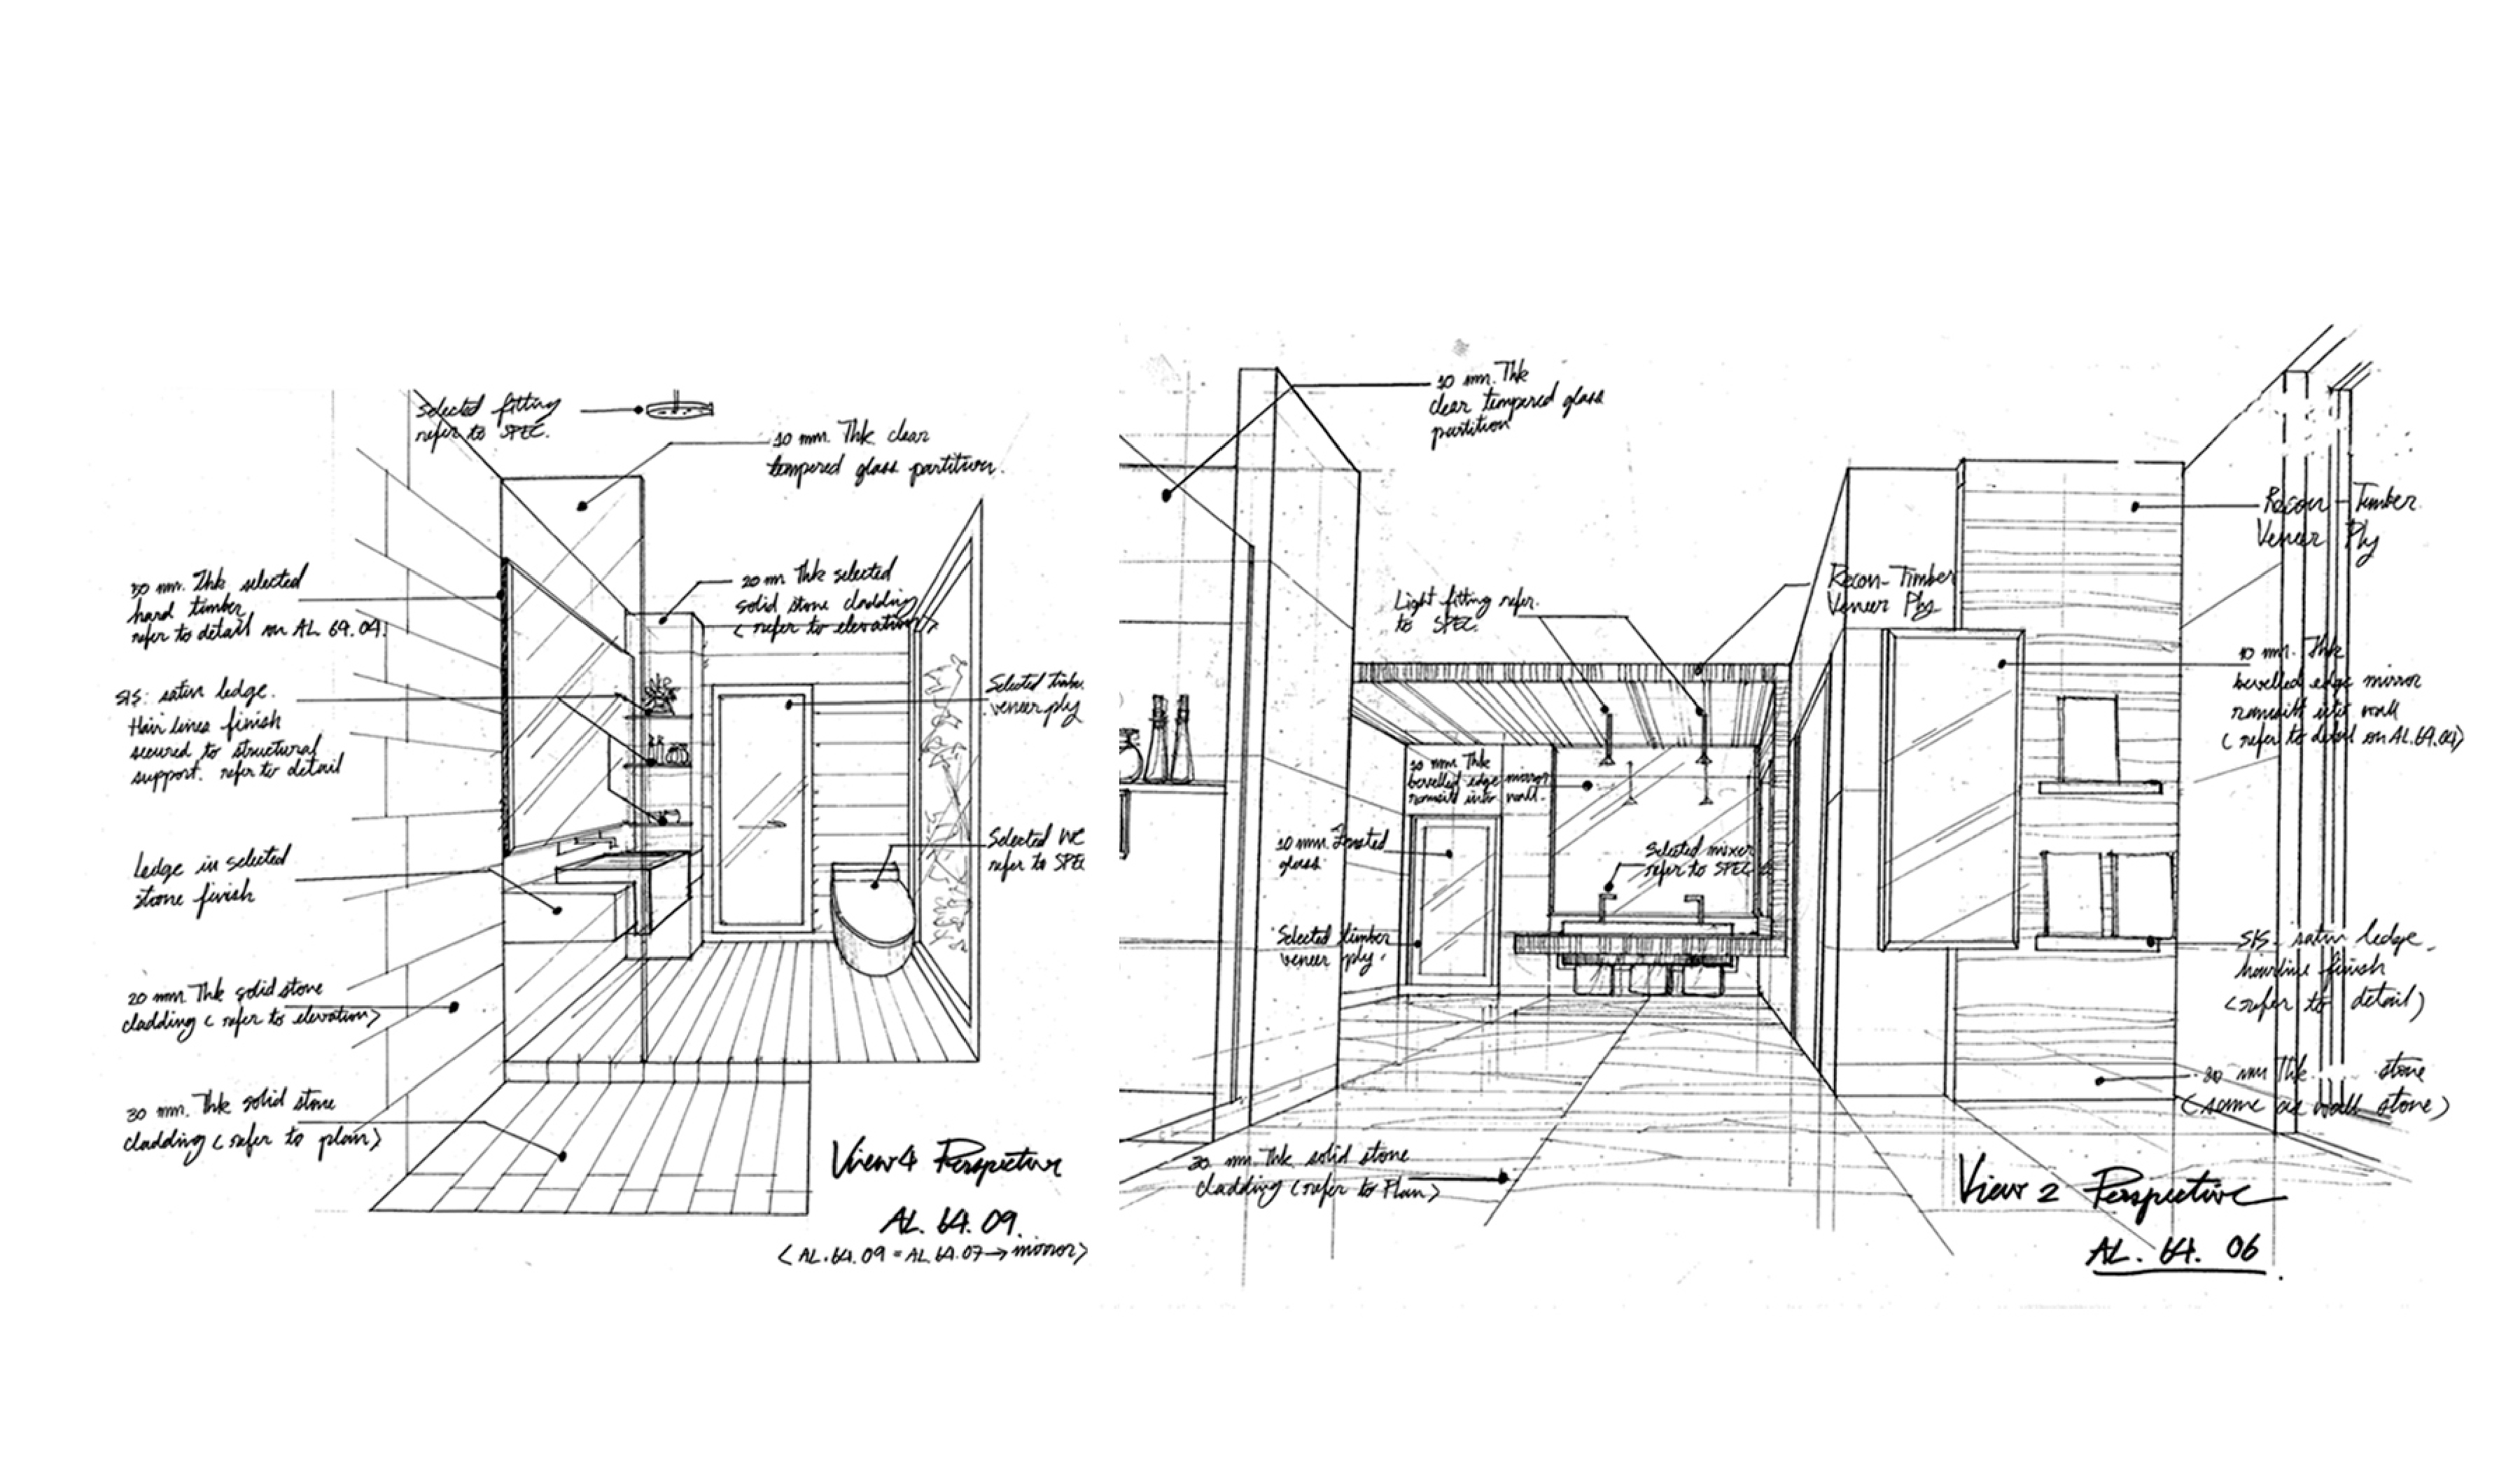 Selected fitting
refer to SPEC.
10 mm. Thk clear
tempered glass partition.
50 mm. Thk selected
hard timber
refer to detail on AL 64.04.
20 m Thk selected
solid stone cladding
< refer to elevation >
S/S: satin ledge.
Hair lines finish
secured to structural
support. refer to detail
Selected timber
veneer ply
Ledge in selected
stone finish
Selected WC
refer to SPEC
20 mm. Thk solid stone
cladding < refer to elevation >
30 mm. Thk solid stone
cladding < refer to plan >
View 4 Perspective
AL. 64. 09.
< AL. 64. 09 = AL. 64. 07 → mirror >
10 mm. Thk
clear tempered glass
partition
Light fitting refer.
to SPEC.
Recon-Timber
Veneer Ply
Recon - Timber
Veneer Ply
10 mm. Thk
bevelled edge mirror
into wall.
10 mm. Thk
bevelled edge mirror
into wall
( refer to detail on AL. 64. 04)
10 mm. Frosted
glass.
Selected mixer
refer to SPEC
Selected timber
veneer ply.
S/S - satin ledge.
hairline finish
(refer to detail)
30 mm Thk. stone
(same as wall stone)
30 mm. Thk solid stone
cladding (refer to Plan)
View 2 Perspective
AL. 64. 06